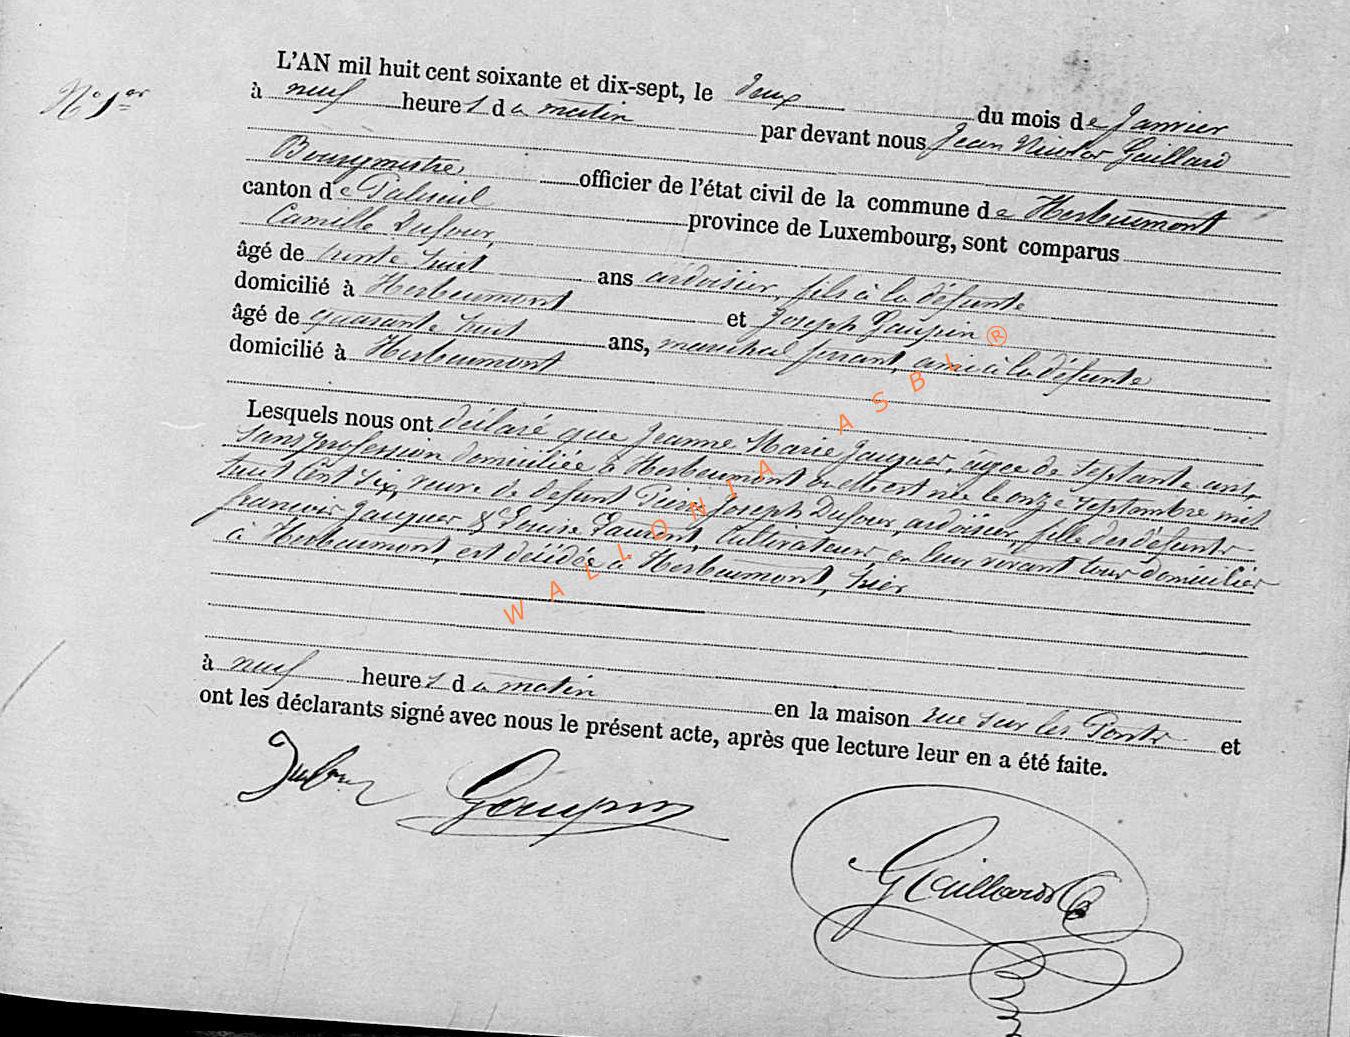 N° 1er
L'AN mil huit cent soixante et dix-sept, le deux du mois de Janvier
à neuf heures du matin par devant nous Jean Nicolas Gaillard
Bourgmestre officier de l'état civil de la commune de Herbeumont
canton de Paliseul province de Luxembourg, sont comparus
Camille Dufour,
âgé de trente huit ans ardoisier, fils à la défunte
domicilié à Herbeumont et Joseph Goupin
âgé de quarante huit ans, marechal ferrant, ami à la défunte
domicilié à Herbeumont
Lesquels nous ont déclaré que Jeanne Marie Jacques, agée de septante ans,
sans profession domiciliée à Herbeumont où elle est née le onze septembre mil
huit cent six, veuve de defunt Pierre Joseph Dufour, ardoisier, fille des défunts
francois Jacques & Louise Laurent, Cultivateurs, en leur vivant tous domiciliés
à Herbeumont, est décédée à Herbeumont, hier
à neuf heures du matin en la maison rue sur les Ponts et
ont les déclarants signé avec nous le présent acte, après que lecture leur en a été faite.
Dufour Goupin
Gaillard
WALLONIA ASBL ®